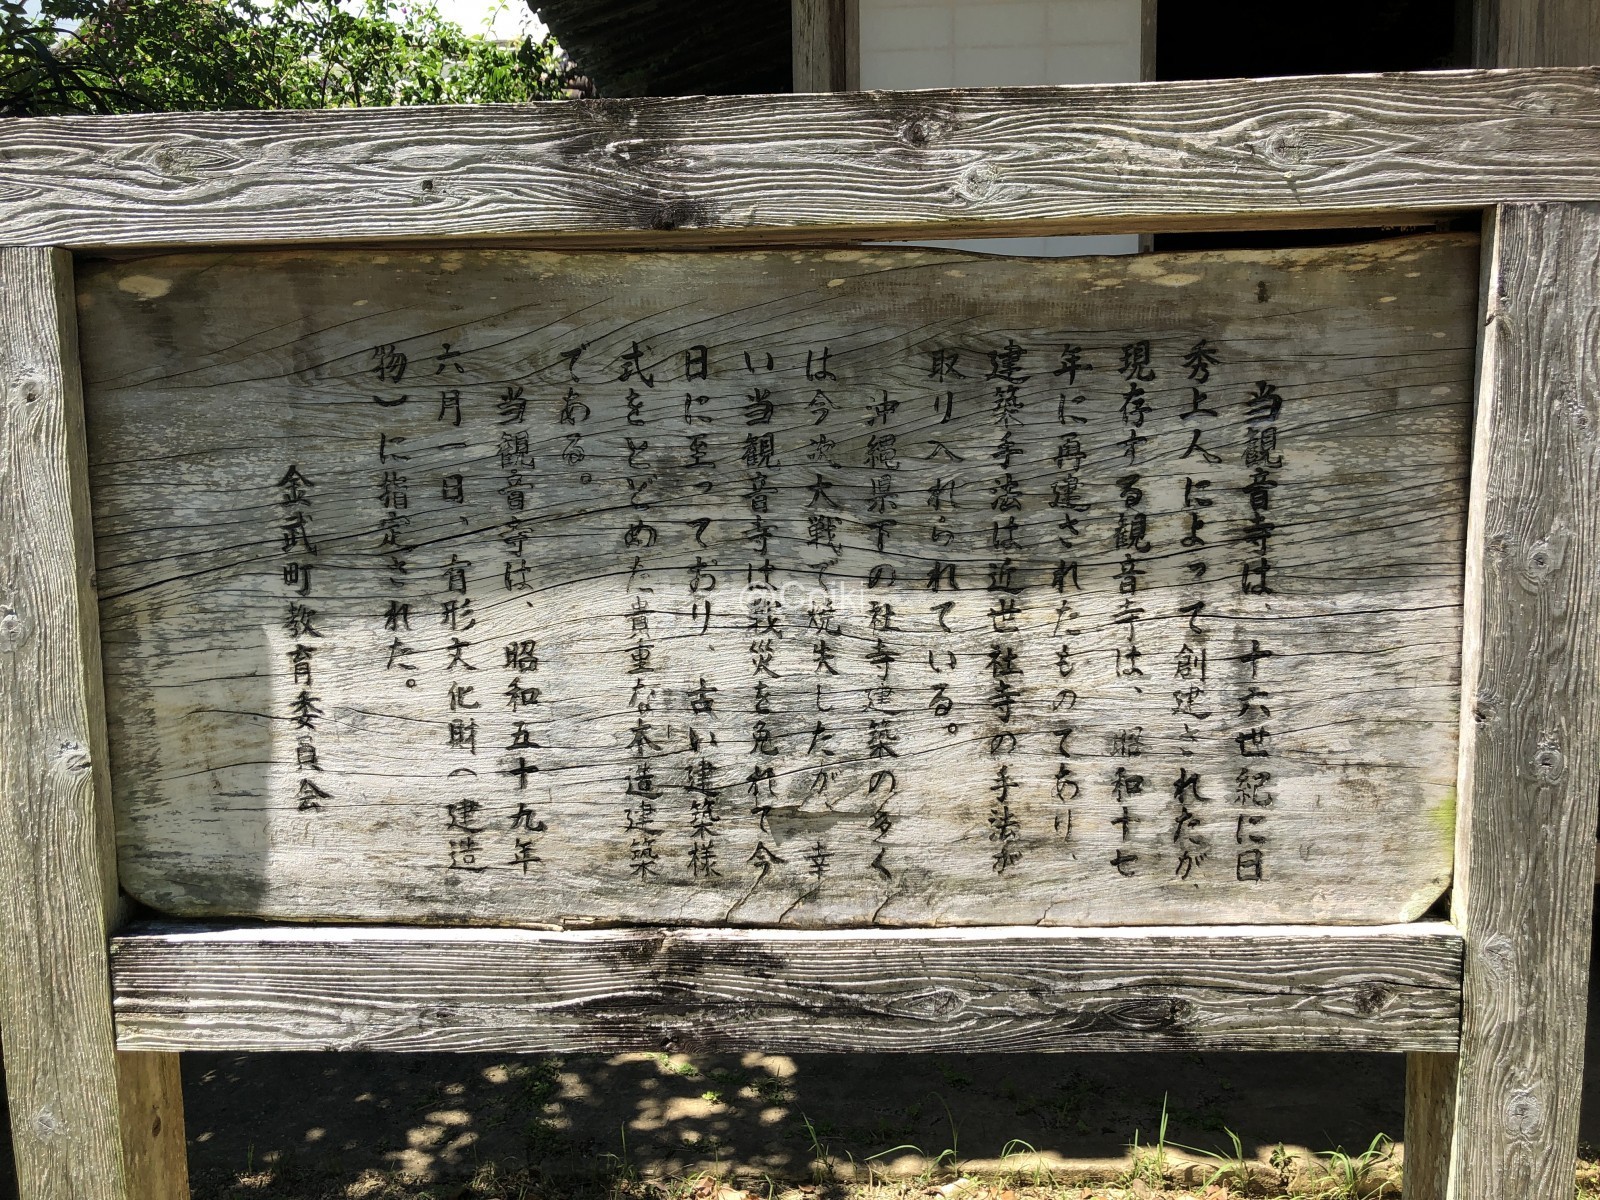 当観音寺は、十六世紀に日
秀上人によって創建されたが、
現存する観音寺は、昭和十七
年に再建されたものであり、
建築手法は近世社寺の手法が
取り入れられている。
沖縄県下の社寺建築の多く
は今次大戦で焼失したが、幸
い当観音寺は戦災を免れて今
日に至っており、古い建築様
式をとどめた貴重な木造建築
である。
当観音寺は、昭和五十九年
六月一日、有形文化財(建造
物)に指定された。
金武町教育委員会